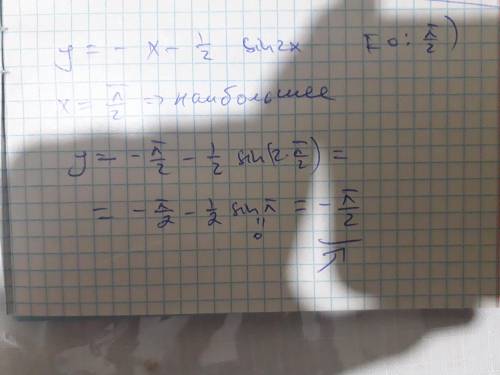 y = - x - 1/2 sin2x [0; π/2)
x = π/2 => наибольшее
y = - π/2 - 1/2 sin(2·π/2) =
= - π/2 - 1/2 sinπ = - π/2
"
0